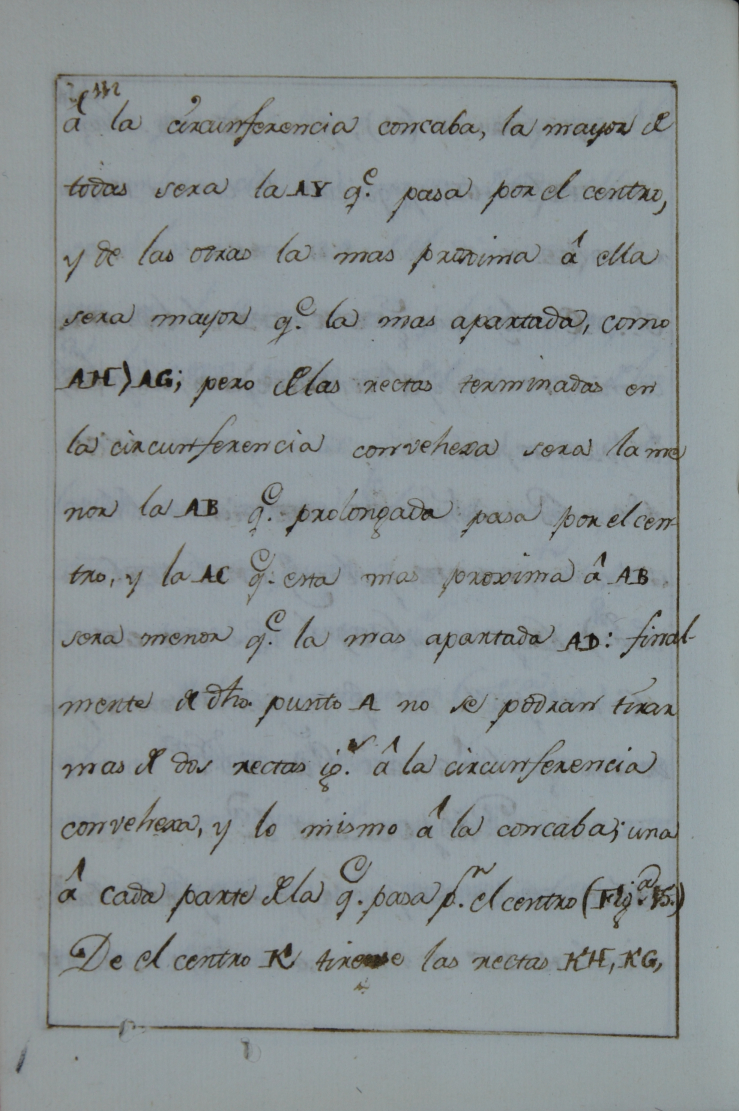 â la circunferencia concaba, la mayor de
todas sera la AY q.e pasa por el centro,
y de las otras la mas proxima â ella
sera mayor q.e la mas apartada, como
AH⟩AG; pero de las rectas terminadas en
la circunferencia convehexa sera la me
nor la AB q.e prolongada pasa por el cen-
tro, y la AC q.e esta mas proxima â AB
sera menor q.e la mas apartada AD: final-
mente de dho. punto A no se podran tirar
mas de dos rectas ig.s â la circunferencia
convehexa, y lo mismo â la concaba; una
â cada parte de la q.e pasa p.r el centro (Fig.a 15.)
De el centro K tirense las rectas KH, KG,